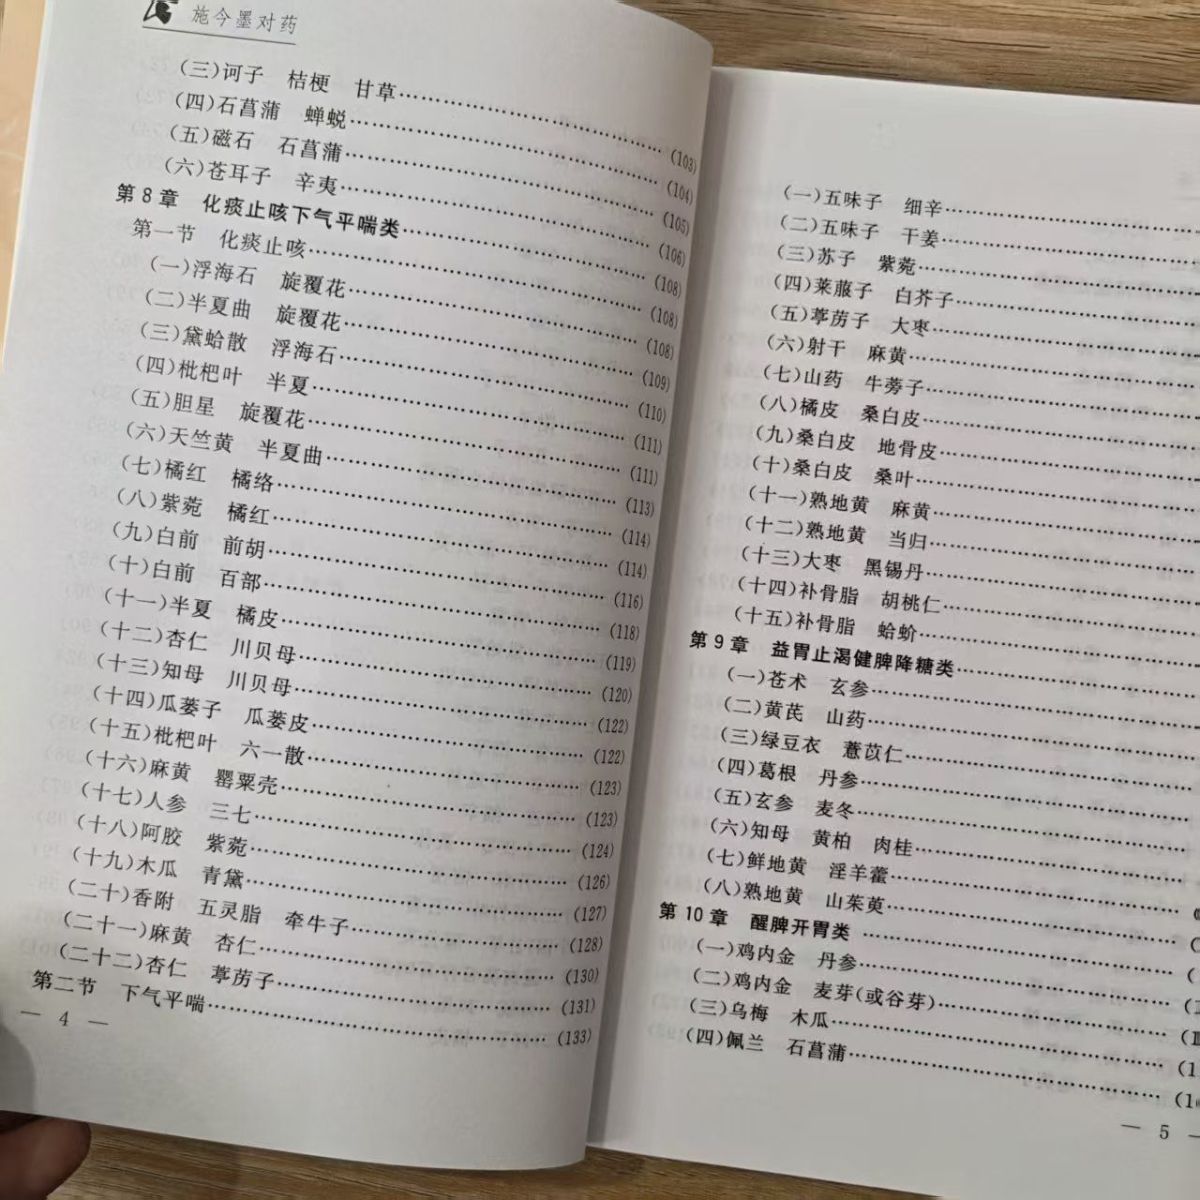 施今墨对药
(三)诃子 桔梗 甘草……(103)
(四)石菖蒲 蝉蜕……(104)
(五)磁石 石菖蒲……(105)
(六)苍耳子 辛夷……(106)
第8章 化痰止咳下气平喘类……(108)
第一节 化痰止咳……(108)
(一)浮海石 旋覆花……(108)
(二)半夏曲 旋覆花……(109)
(三)黛蛤散 浮海石……(110)
(四)枇杷叶 半夏……(111)
(五)胆星 旋覆花……(111)
(六)天竺黄 半夏曲……(113)
(七)橘红 橘络……(114)
(八)紫菀 橘红……(114)
(九)白前 前胡……(116)
(十)白前 百部……(118)
(十一)半夏 橘皮……(119)
(十二)杏仁 川贝母……(120)
(十三)知母 川贝母……(122)
(十四)瓜蒌子 瓜蒌皮……(122)
(十五)枇杷叶 六一散……(123)
(十六)麻黄 罂粟壳……(123)
(十七)人参 三七……(124)
(十八)阿胶 紫菀……(126)
(十九)木瓜 青黛……(127)
(二十)香附 五灵脂 牵牛子……(128)
(二十一)麻黄 杏仁……(130)
(二十二)杏仁 葶苈子……(131)
第二节 下气平喘……(133)
— 4 —
(一)五味子 细辛……
(二)五味子 干姜……
(三)苏子 紫菀……
(四)莱菔子 白芥子……
(五)葶苈子 大枣……
(六)射干 麻黄……
(七)山药 牛蒡子……
(八)橘皮 桑白皮……
(九)桑白皮 地骨皮……
(十)桑白皮 桑叶……
(十一)熟地黄 麻黄……
(十二)熟地黄 当归……
(十三)大枣 黑锡丹……
(十四)补骨脂 胡桃仁……
(十五)补骨脂 蛤蚧……
第9章 益胃止渴健脾降糖类……
(一)苍术 玄参……
(二)黄芪 山药……
(三)绿豆衣 薏苡仁……
(四)葛根 丹参……
(五)玄参 麦冬……
(六)知母 黄柏 肉桂……
(七)鲜地黄 淫羊藿……
(八)熟地黄 山茱萸……
第10章 醒脾开胃类……
(一)鸡内金 丹参……
(二)鸡内金 麦芽(或谷芽)……
(三)乌梅 木瓜……
(四)佩兰 石菖蒲……
— 5 —